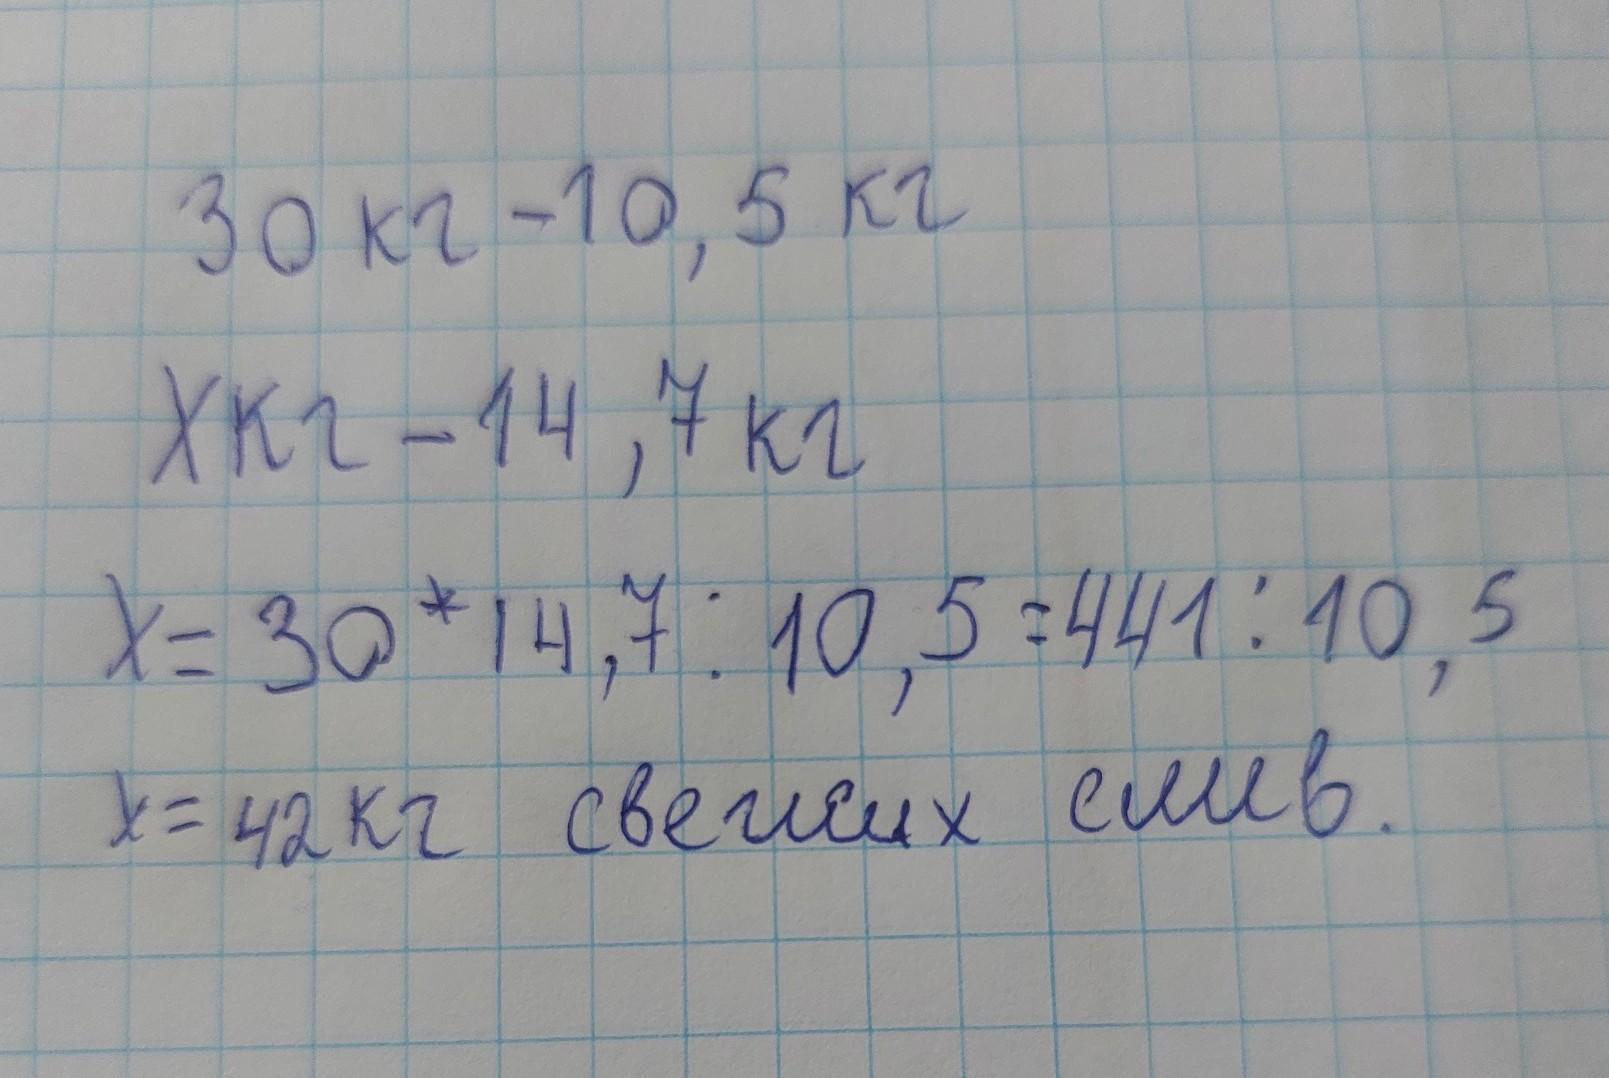 30 кг - 10,5 кг
X кг - 14,7 кг
X = 30 * 14,7 : 10,5 = 441 : 10,5
x = 42 кг свежих слив.